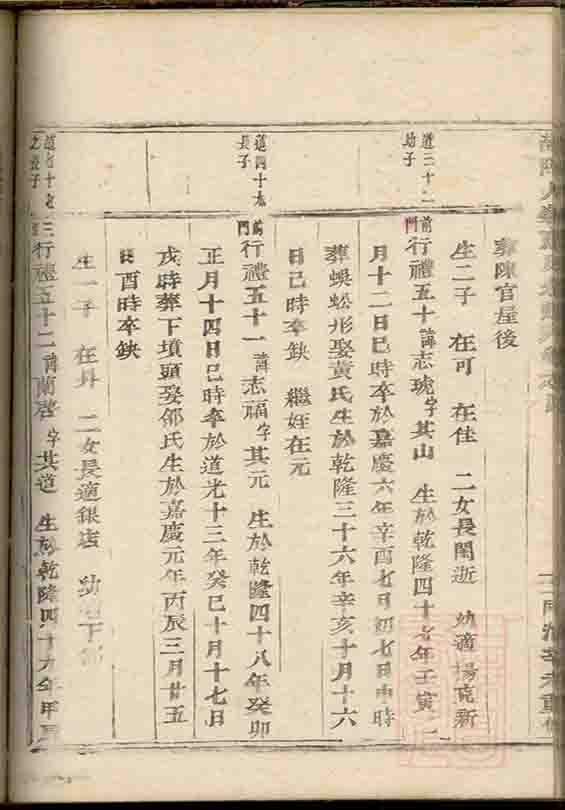 葬陳官屋後
生二子 在可 在佳 二女長閨逝 幼適楊克新
道三十二
幼子
前門
行禮五十諱志琥字其山 生於乾隆四十七年壬寅二
月十二日巳時卒於嘉慶六年辛酉七月初七日申時
葬蜈蚣形娶黃氏生於乾隆三十六年辛亥十月十六
日己時卒缺 繼姪在元
道四十九
長子
前門
行禮五十一諱志福字其元 生於乾隆四十八年癸卯
正月十四日巳時卒於道光十三年癸巳十月十七日
戌時葬下墳頭娶邵氏生於嘉慶元年丙辰三月廿五
日酉時卒缺
生一子 在丹 二女長適銀店 幼
道七十
之長子
行禮五十二諱蘭啓字其道 生於乾隆四十九年甲辰